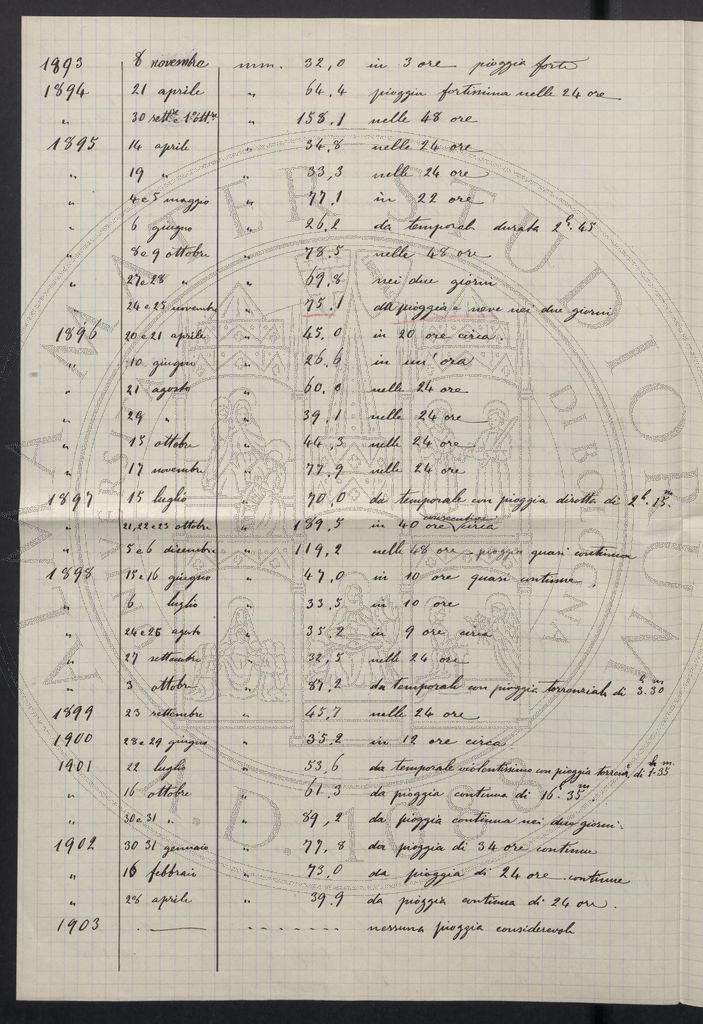 1893 8 novembre mm. 32,0 in 3 ore pioggia forte
1894 21 aprile " 64.4 pioggia fortissima nelle 24 ore
" 30 sett.e e 1° ott.e " 158.1 nelle 48 ore
1895 14 aprile " 34,8 nelle 24 ore
" 19 " " 33,3 nelle 24 ore
" 4 e 5 maggio " 77.1 in 22 ore
" 6 giugno " 26.2 da temporale durata 2h. 45
" 8 e 9 ottobre " 78.5 nelle 48 ore
" 27 e 28 " " 69.8 nei due giorni
" 24 e 25 novembre " 75.1 da pioggia e neve nei due giorni
1896 20 e 21 aprile " 45.0 in 20 ore circa.
" 10 giugno " 26.6 in un' ora
" 21 agosto " 60.0 nelle 24 ore
" 29 " " 39.1 nelle 24 ore
" 15 ottobre " 44.3 nelle 24 ore
" 17 novembre " 77.9 nelle 24 ore
1897 15 luglio " 70,0 da temporale con pioggia dirotta di 2h. 15m
" 21, 22 e 23 ottobre " 189,5 in 40 ore consecutive circa
" 5 e 6 dicembre " 119,2 nelle 48 ore pioggia quasi continua
1898 15 e 16 giugno " 47,0 in 10 ore quasi continue,
" 6 luglio " 33,5 in 10 ore
" 24 e 25 agosto " 35,2 in 9 ore circa
" 27 settembre " 32,5 nelle 24 ore
" 3 ottobre " 87,2 da temporale con pioggia torrenziale di 3h.30m
1899 23 settembre " 45,7 nelle 24 ore
1900 28 e 29 giugno " 35,2 in 12 ore circa
1901 22 luglio " 53,6 da temporale violentissimo con pioggia di 1h.35m
" 16 ottobre " 61,3 da pioggia continua di 16h 35m.
" 30 e 31 " " 89,2 da pioggia continua nei due giorni.
1902 30 31 gennaio " 77,8 da pioggia di 34 ore continue
" 16 febbraio " 73,0 da pioggia di 24 ore continue
" 28 aprile " 39.9 da pioggia continua di 24 ore.
1903 . —— - - - - - - - nessuna pioggia considerevole
ALMA MATER STUDIORUM
UNIVERSITÀ DI BOLOGNA
A.D. 1088